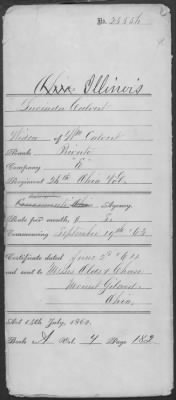 No. 25856
Ohio Illinois
Lucinda Calvert
Widow of Wm Calvert
Rank Private
Company "E"
Regiment 26th Ohio Vol.
Agency.
Rate per month, $ 8
Commencing September 19th '63
Certificate dated June 2d '64
and sent to Messrs Olds & Chase
Mount Gilead
Ohio.
Act 14th July, 1862.
Book A Vol. 4 Page 182